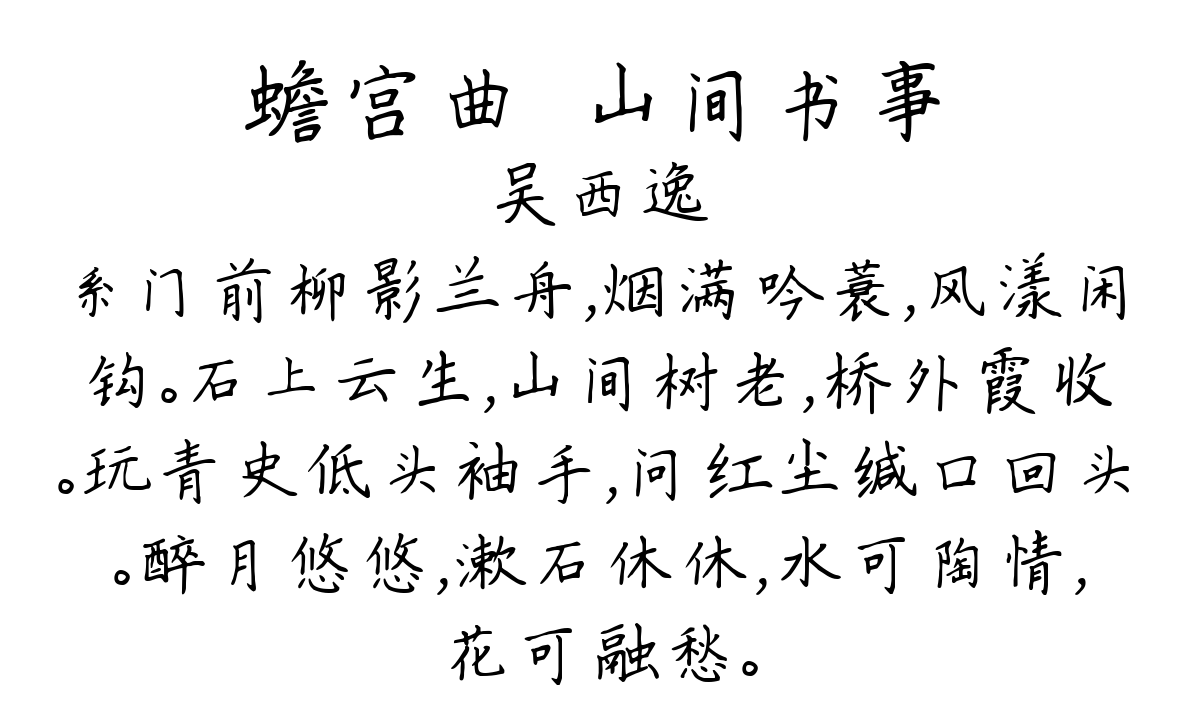 蟾宫曲 山间书事
吴西逸
系门前柳影兰舟,烟满吟蓑,风漾闲
钩。石上云生,山间树老,桥外霞收
。玩青史低头袖手,问红尘缄口回头
。醉月悠悠,漱石休休,水可陶情,
花可融愁。